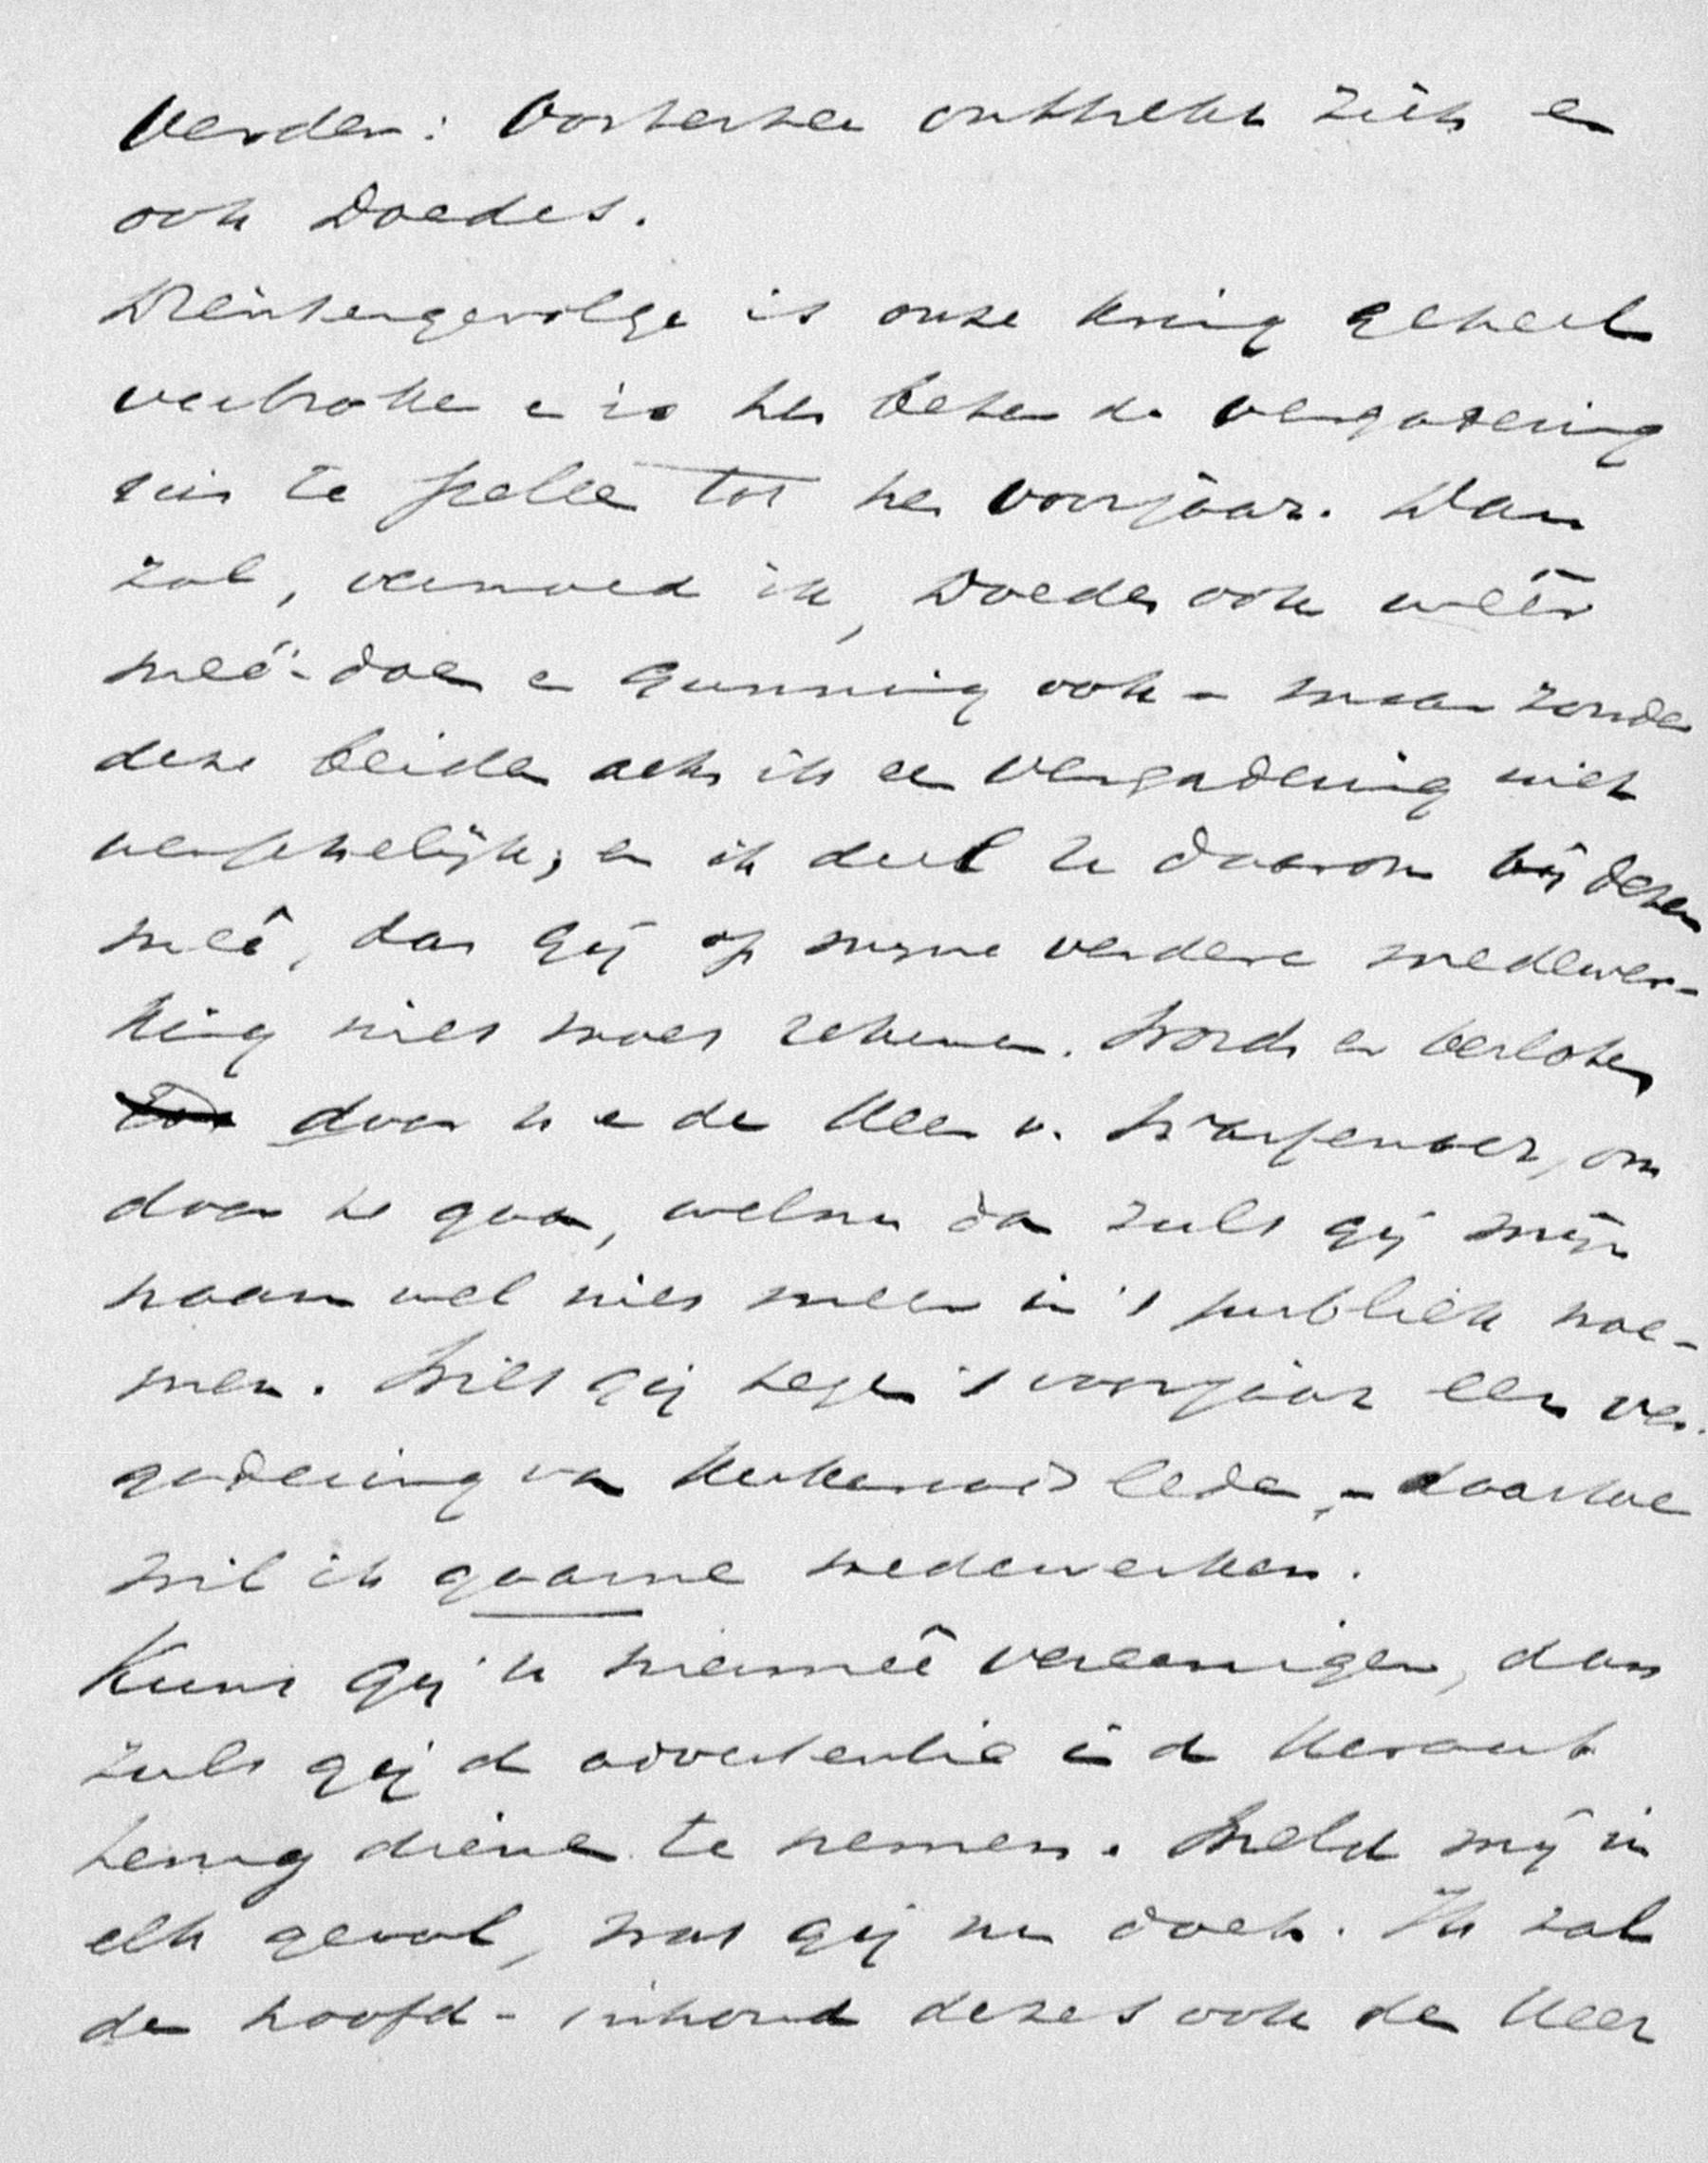 Verder: Oosterzee onttrekt zich en
ook Doedes.
Dientengevolge is onze kring geheel
verbroken en is het beter de vergadering
uit te stellen tot het voorjaar. Dan
zal, vermoed ik, Doedes ook weêr
meê-doen en Gunning ook – maar zonder
deze beiden acht ik een vergadering niet
wenschelijk; en ik deel U daarom bij dezen
meê, dat gij op mijne verdere medewer-
king niet moet rekenen. Wordt er besloten
door U en de Heer v. Wassenaer, om
door te gaan, welnu dan zult gij mijn
naam wel niet meer in 't publiek noe-
men. Wilt gij tegen 't voorjaar een ver-
gadering van Kerkeraadsleden, – daartoe
wil ik gaarne medewerken.
Kunt gij U hiermeê vereenigen, dan
zult gij de advertentie in de Heraut
terug dienen te nemen. Meld mij in
elk geval, wat gij nu doet. Ik zal
den hoofd-inhoud dezes ook den Heer